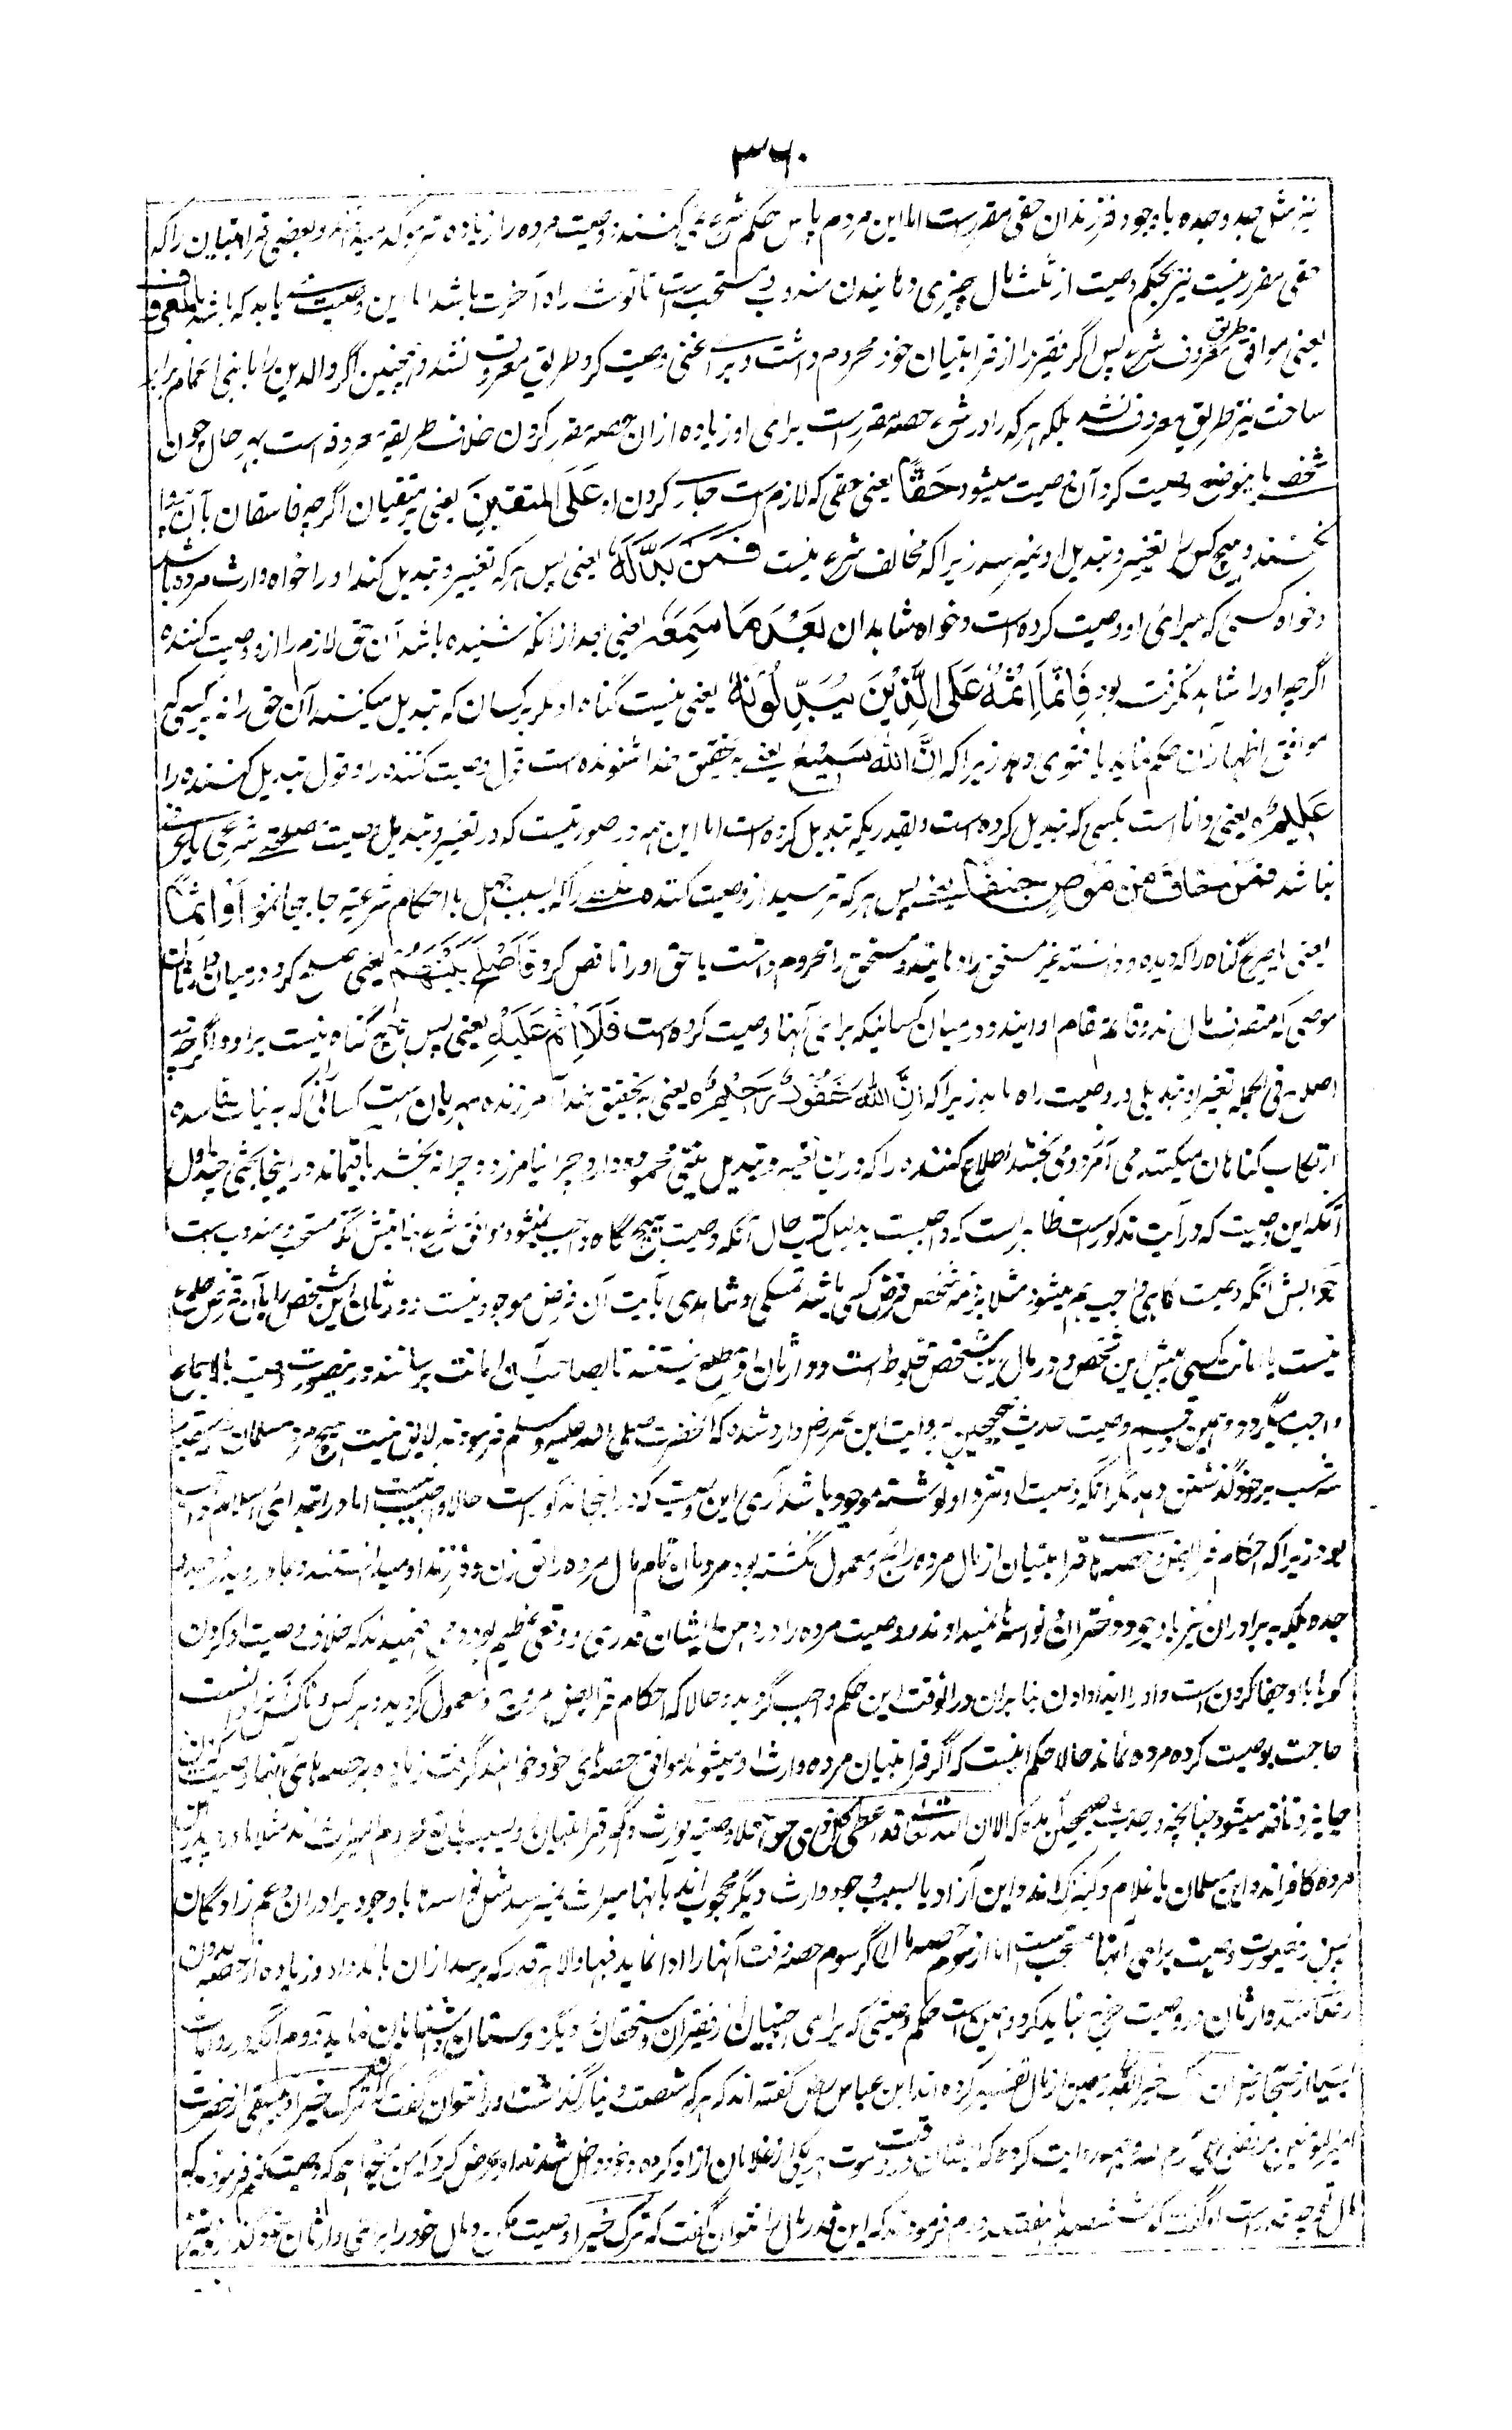 ۳۶۰
نیز مثل جد و جده با وجود فرزندان حقی مقرر است اما این مردم پاس حکم شرع نمی کنند و وصیت مرده را زیاده تر موکد میدانند و بعضی قرابتیان را که
حقی مقرر نیست نیز بحکم وصیت از ثلث مال چیزی دهانیدن مندوب و مستحب است تا توشه راه آخرت باشد اما این وصیت باید که باشد بالمعروف
یعنی موافق طریق معروف شرع پس اگر فقیر را از قرابتیان خود محروم داشت و برای غنی وصیت کرد طریق معروف نشد و همچنین اگر والدین را با بنی اعمام برابر
ساخت نیز طریق معروف نشد بلکه هر که را در شرع حصه مقرر است برای او زیاده از ان حصه مقرر کردن خلاف طریقه معروفه است بهر حال چون
شخصی باینوضع وصیت کرد آن وصیت میشود حَقًّا یعنی حقی که لازم است جاری کردن او عَلَى المتقينَ یعنی بر متقیان اگر چه فاسقان بآن
نکنند و هیچ کس را تغییر و تبدیل او نمیرسد زیرا که مخالف شرع نیست فَمَنْ بَدَّلَهُ یعنی پس هر که تغییر و تبدیل کند او را خواه وارث مرده باشد
و خواه کسی که برای او وصیت کرده است و خواه شاهدان بَعْدَ مَا سَمِعَهُ یعنی بعد از انکه شنیده باشد آن حق لازم را از وصیت کننده
اگرچه او را شاهد نگرفته بود فَاِنَّمَا اِثْمُهُ عَلَى الَّذِيْنَ يُبَدِّلُوْنَهٗ یعنی نیست گناه او مگر بر کسان که تبدیل میکنند آن حق را نه بر کسی که
موافق اظهار آن حکم نماید یا فتوی دهد زیرا که اِنَّ اللهَ سَمِيْعٌ یعنی به تحقیق خدا شنونده است قول وصیت کننده را و قول تبدیل کننده را
عَلِيْمٌ یعنی دانا است بکسی که تبدیل کرده است و بقدریکه تبدیل کرده است اما این همه در صورتیست که در تغییر و تبدیل وصیت مصلحت شرعی
نباشد فَمَنْ خَافَ مِنْ مُّوْصٍ جَنَفًا یعنی پس هر که ترسید از وصیت کننده را که بسبب جهل با احکام شرعیه جابجا نمود اَوْ اِثْمًا
یعنی یا صریح گناه را که دیده و دانسته غیر مستحق را دهانید و مستحق را محروم داشت یا حق او را ناقص کرد فَاَصْلَحَ بَيْنَهُمْ یعنی صلح کرد درمیان وارثان
موصی که مستحق مال اند و قائم مقام او اند و درمیان کسانیکه برای آنها وصیت کرده است فَلَا اِثْمَ عَلَيْهِ یعنی پس هیچ گناه نیست بر او اگرچه
اصلاح فی الجمله تغییر و تبدیلی در وصیت راه یابد زیرا که اِنَّ اللهَ غَفُوْرٌ رَّحِيْمٌ یعنی به تحقیق خدا آمرزنده مهربان است کسانی که به نیات فاسده
ارتکاب گناهان میکنند می آمرزد و می بخشد اصلاح کننده را که در ان تغییر و تبدیل نیتی محمود دارد چرا نیامرزد و چرا نه بخشد باقیماند در اینجا بحثی چند اول
آنکه این وصیت که در آیت مذکور است ظاهر است که واجبست بدلیل کتب حال آنکه وصیت هیچ گاه واجب نمیشود موافق شرع نهایتش آنکه مستحب و مندوب است
جوابش آنکه وصیت گاهی واجب هم میشود مثلا بذمه شخص قرض کسی باشد و تمسکی و شاهدی بابت آن قرض موجود نیست و وارثان این شخص را بآن قرض اطلاع
نیست یا امانت کسی پیش این شخص و در مال این شخص مخلوط است و وارثان او مطلع نیستند تا بصاحب آن امانت برسانند درینصورت وصیت بالاجماع
واجب میگردد و همین قسم وصیت حدیث صحیحین بروایت ابن عمر رض وارد شده که آنحضرت صلی الله علیه وسلم فرموده لایق نیست هیچ مرد مسلمان
سه شب بر خود گذشتن دهد مگر آنکه وصیت او نزد او نوشته موجود باشد آری این وصیت که در اینجا مذکور است حالا واجب نیست اما در ابتدای اسلام واجب
بود زیرا که احکام فرایض و حصه های قرابتیان از مال مرده رائج و معمول نگشته بود مردمان تمام مال مرده را حق زن و فرزند او میدانستند و مادر و پدر و جد و
جده بلکه به برادران نیز با وجود دختران و نواسها نمیدادند و وصیت مرده را در ذهن ایشان قدری و وقعی عظیم بود و می فهمیدند که خلاف وصیت او کردن
گویا با او جفا کردن است و او را ایذا دادن بنابران در آنوقت این حکم واجب گردید و حالا که احکام فرایض مروج و معمول گردید و هر کس و ناکس آنرا دانست
حاجت بوصیت کرده مرده نماند حالا حکم اینست که اگر قرابتیان مرده وارث او میشوند موافق حصه های خود خواهند گرفت زیاده بر حصه های آنها وصیت
جایز و نافذ نمیشود چنانچه در حدیث صحیحین آمده که الا ان الله تعالی قد اعطی کل ذی حق حقه فلا وصیة لوارث و اگر قرابتیان بسبب مانعی محروم المیراث اند مثلا مادر و پدر این
مرده کافر اند و این مسلمان یا غلام و کنیزک اند و این آزاد یا بسبب وجود وارث دیگر محجوب اند بآنها میراث نمیرسد مثل نواسها با وجود برادران و عم زادگان
پس درینصورت وصیت برای آنها مستحب است اما از سوم حصه مال اگر سوم حصه وقت آنها را ادا نماید فبها والا هر قدر که برسد از ان باید داد و زیاده از حصه بدون
رضامندی وارثان در وصیت خرج نباید کرد و همین است حکم وصیتی که برای اجنبیان از فقیران و مستحقان و دیگر دوستان و آشنایان نماید دوم آنکه در روایات
بسیار از صحابه ان ترک خیرا بقدر معین از مال تفسیر کرده اند ابن عباس رض گفته اند که هر که شصت دینار گذاشت او را نتوان گفت که ترک خیرا و بیهقی از حضرت
امیر المومنین مرتضی علی کرم الله وجهه روایت کرده که ایشان در وقت موت بر یکی از غلامان ازاد کرده خود داخل شدند او عرض کرد که من میخواهم که وصیت کنم فرمود که
مال تو چه قدر است او گفت که شش صد یا هفتصد درم فرمودند که این قدر مال را نتوان گفت که ترک خیرا وصیت مکن و مال خود را برای وارثان خود بگذار